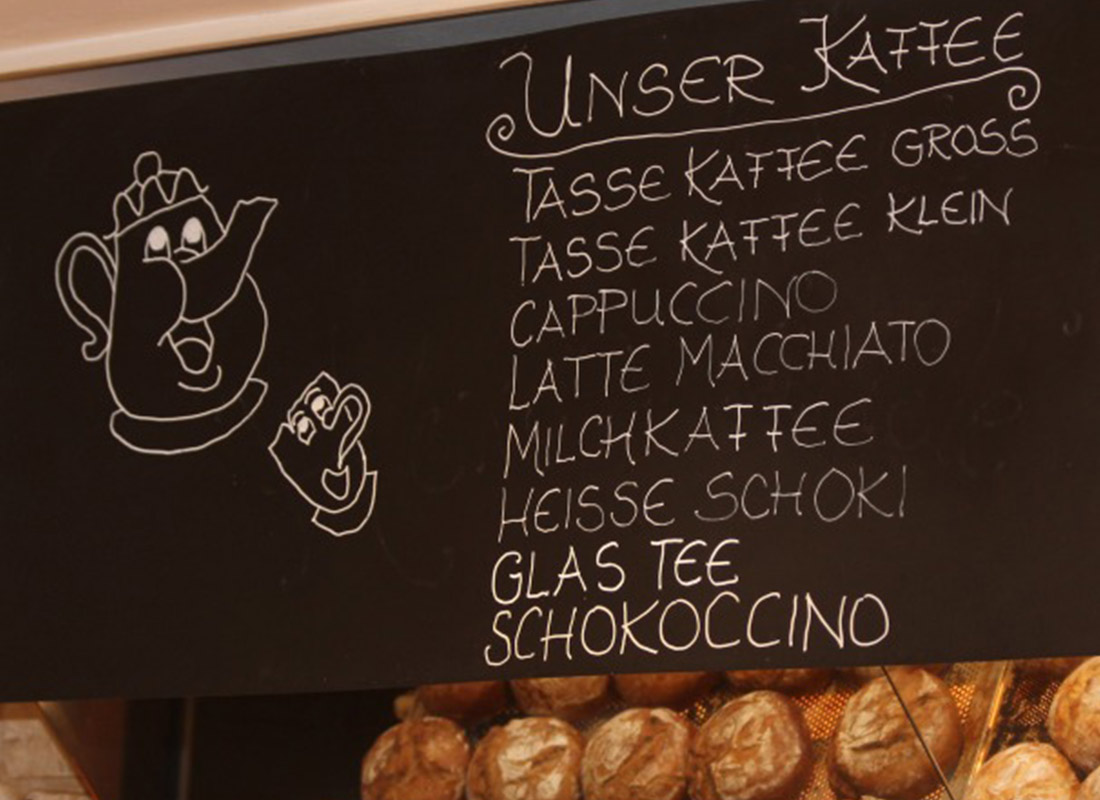 UNSER KAFFEE
TASSE KAFFEE GROSS
TASSE KAFFEE KLEIN
CAPPUCCINO
LATTE MACCHIATO
MILCHKAFFEE
HEISSE SCHOKI
GLAS TEE
SCHOKOCCINO